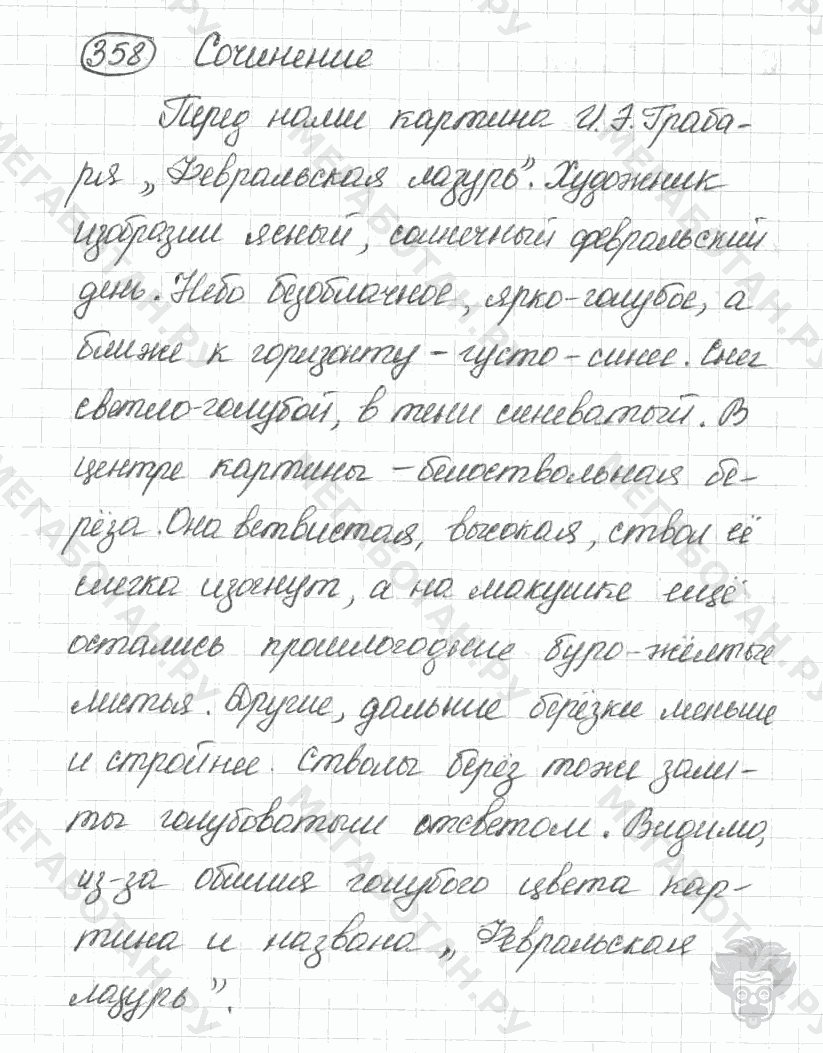 358 Сочинение
Перед нами картина И.Э.Граба-
ря „Февральская лазурь”. Художник
изобразил ясный, солнечный февральский
день. Небо безоблачное, ярко-голубое, а
ближе к горизонту – густо-синее. Снег
светло-голубой, в тени синеватый. В
центре картины – белоствольная бе-
рёза. Она ветвистая, высокая, ствол её
слегка изогнут, а на макушке ещё
остались прошлогодние буро-жёлтые
листья. Другие, дальние берёзки меньше
и стройнее. Стволы берёз тоже зали-
ты голубоватым отсветом. Видимо,
из-за обилия голубого цвета кар-
тина и названа „Февральская
лазурь”.
МЕГАБОТАН.РУ